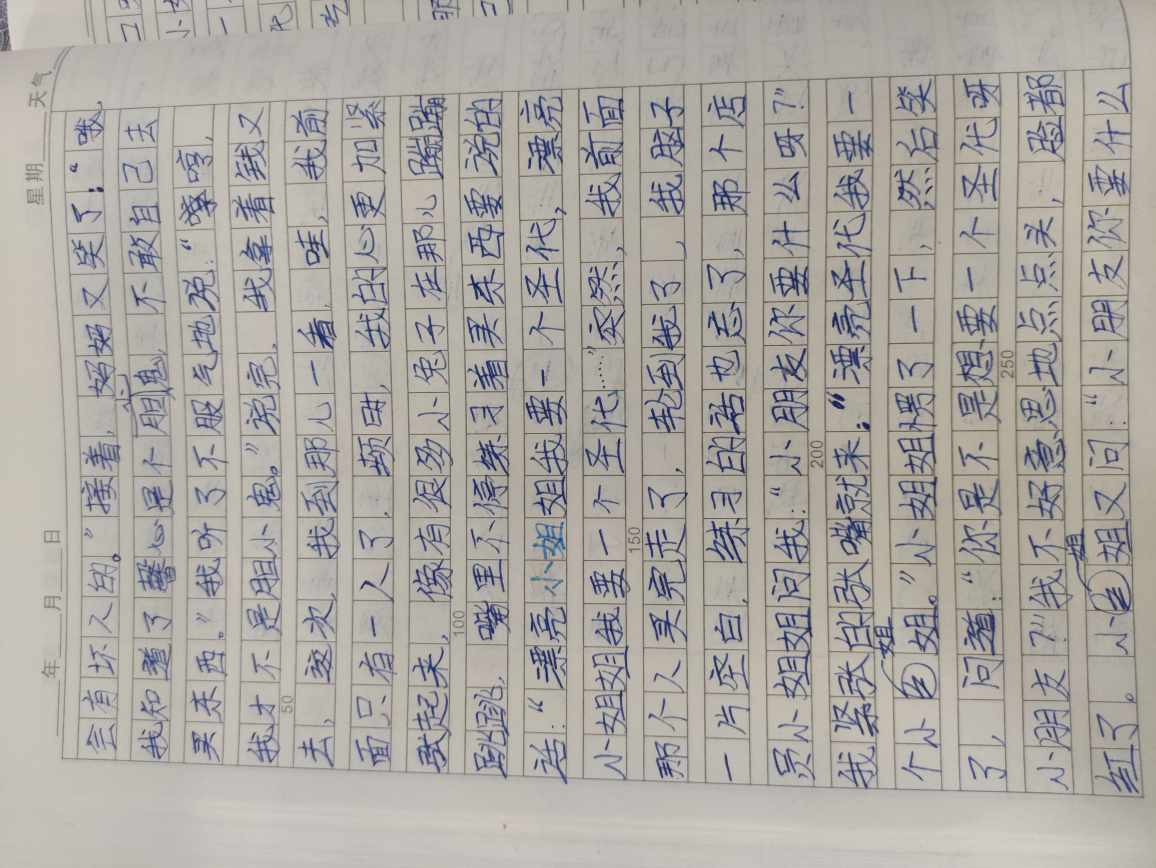 年 月 日 星期 天气
会有坏人的。”接着,妈妈又笑了:“哦,
我知道了馨心是个胆小鬼,不敢自己去
买东西。”我听了不服气地说:“拿哼,
我才不是胆小鬼。”说完,我拿着钱又
50
去,这次,我到那儿一看,哇,我前
面只有一人了,顿时,我的心更加紧
张起来,像有很多小兔子在那儿蹦蹦
100
跳跳,嘴里不停练习着买东西要说的
话:“漂亮小姐姐我要一个圣代,漂亮
小姐姐我要一个圣代……”突然,我前面
150
那个人买完走了,轮到我了,我脑子
一片空白,练习的话也忘了,那个店
员小姐姐问我:“小朋友你要什么呀?”
200
我紧张的张嘴就来:“漂亮圣代我要一
个小姐姐。”小姐姐愣了一下,然后笑
了,问道:“你是不是想要一个圣代呀
250
小朋友?”我不好意思地点点头,脸都
红了。小姐姐又问:“小朋友你要什么